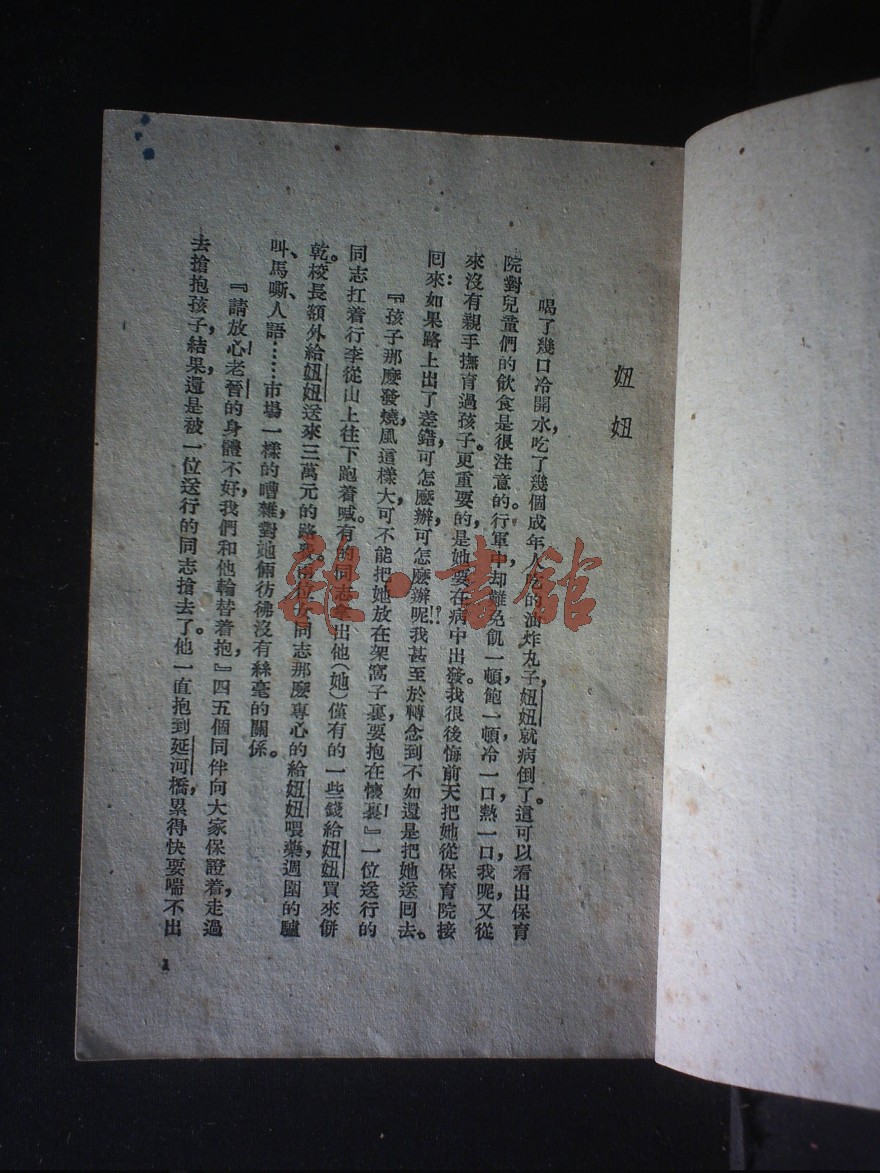 妞妞
喝了幾口冷開水，吃了幾個成年人吃的油炸丸子，妞妞就病倒了。這可以看出保育
院對兒童們的飲食是很注意的。行軍中，却難免飢一頓，飽一頓，冷一口，熱一口，我呢，又從
來沒有親手撫育過孩子。更重要的，是她要在病中出發。我很後悔前天把她從保育院接
回來：如果路上出了差錯，可怎麼辦，可怎麼辦呢!?我甚至於轉念到不如還是把她送回去。
『孩子那麼發燒，風這樣大，可不能把她放在架窩子裏，要抱在懷裏！』一位送行的
同志扛着行李從山上往下跑着喊。有的同志拿出他(她)僅有的一些錢給妞妞買來餅
乾。校長額外給妞妞送來三萬元的路費。兩位女同志那麼專心的給妞妞喂藥，週圍的驢
叫、馬嘶、人語……市場一樣的嘈雜，對她倆彷彿沒有絲毫的關係。
『請放心！老晉的身體不好，我們和他輪替着抱，』四五個同伴向大家保證着，走過
去搶抱孩子，結果，還是被一位送行的同志搶去了。他一直抱到延河橋，累得快要喘不出
1
雜·書館